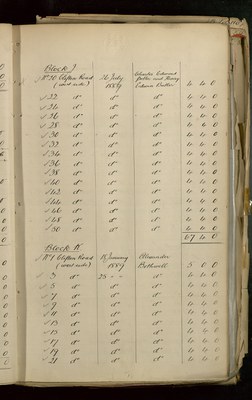 Block J
√ No 20 Clifton Road 26 July Charles Edward
(west side) 1889 4 4 0
√ 22 do do do 4 4 0
√ 24 do do do 4 4 0
√ 26 do do do 4 4 0
√ 28 do do do 4 4 0
√ 30 do do do 4 4 0
√ 32 do do do 4 4 0
√ 34 do do do 4 4 0
√ 36 do do do 4 4 0
√ 38 do do do 4 4 0
√ 40 do do do 4 4 0
√ 42 do do do 4 4 0
√ 44 do do do 4 4 0
√ 46 do do do 4 4 0
√ 48 do do do 4 4 0
√ 50 do do do 4 4 0
67 4 0
Block K
√ No 1 Clifton Road 18 January Alexander
(east side) 1889 Bothwell 5 0 0
√ 3 do 25 " " do 4 4 0
√ 5 do do do 4 4 0
√ 7 do do do 4 4 0
√ 9 do do do 4 4 0
√ 11 do do do 4 4 0
√ 13 do do do 4 4 0
√ 15 do do do 4 4 0
√ 17 do do do 4 4 0
√ 19 do do do 4 4 0
√ 21 do do do 4 4 0